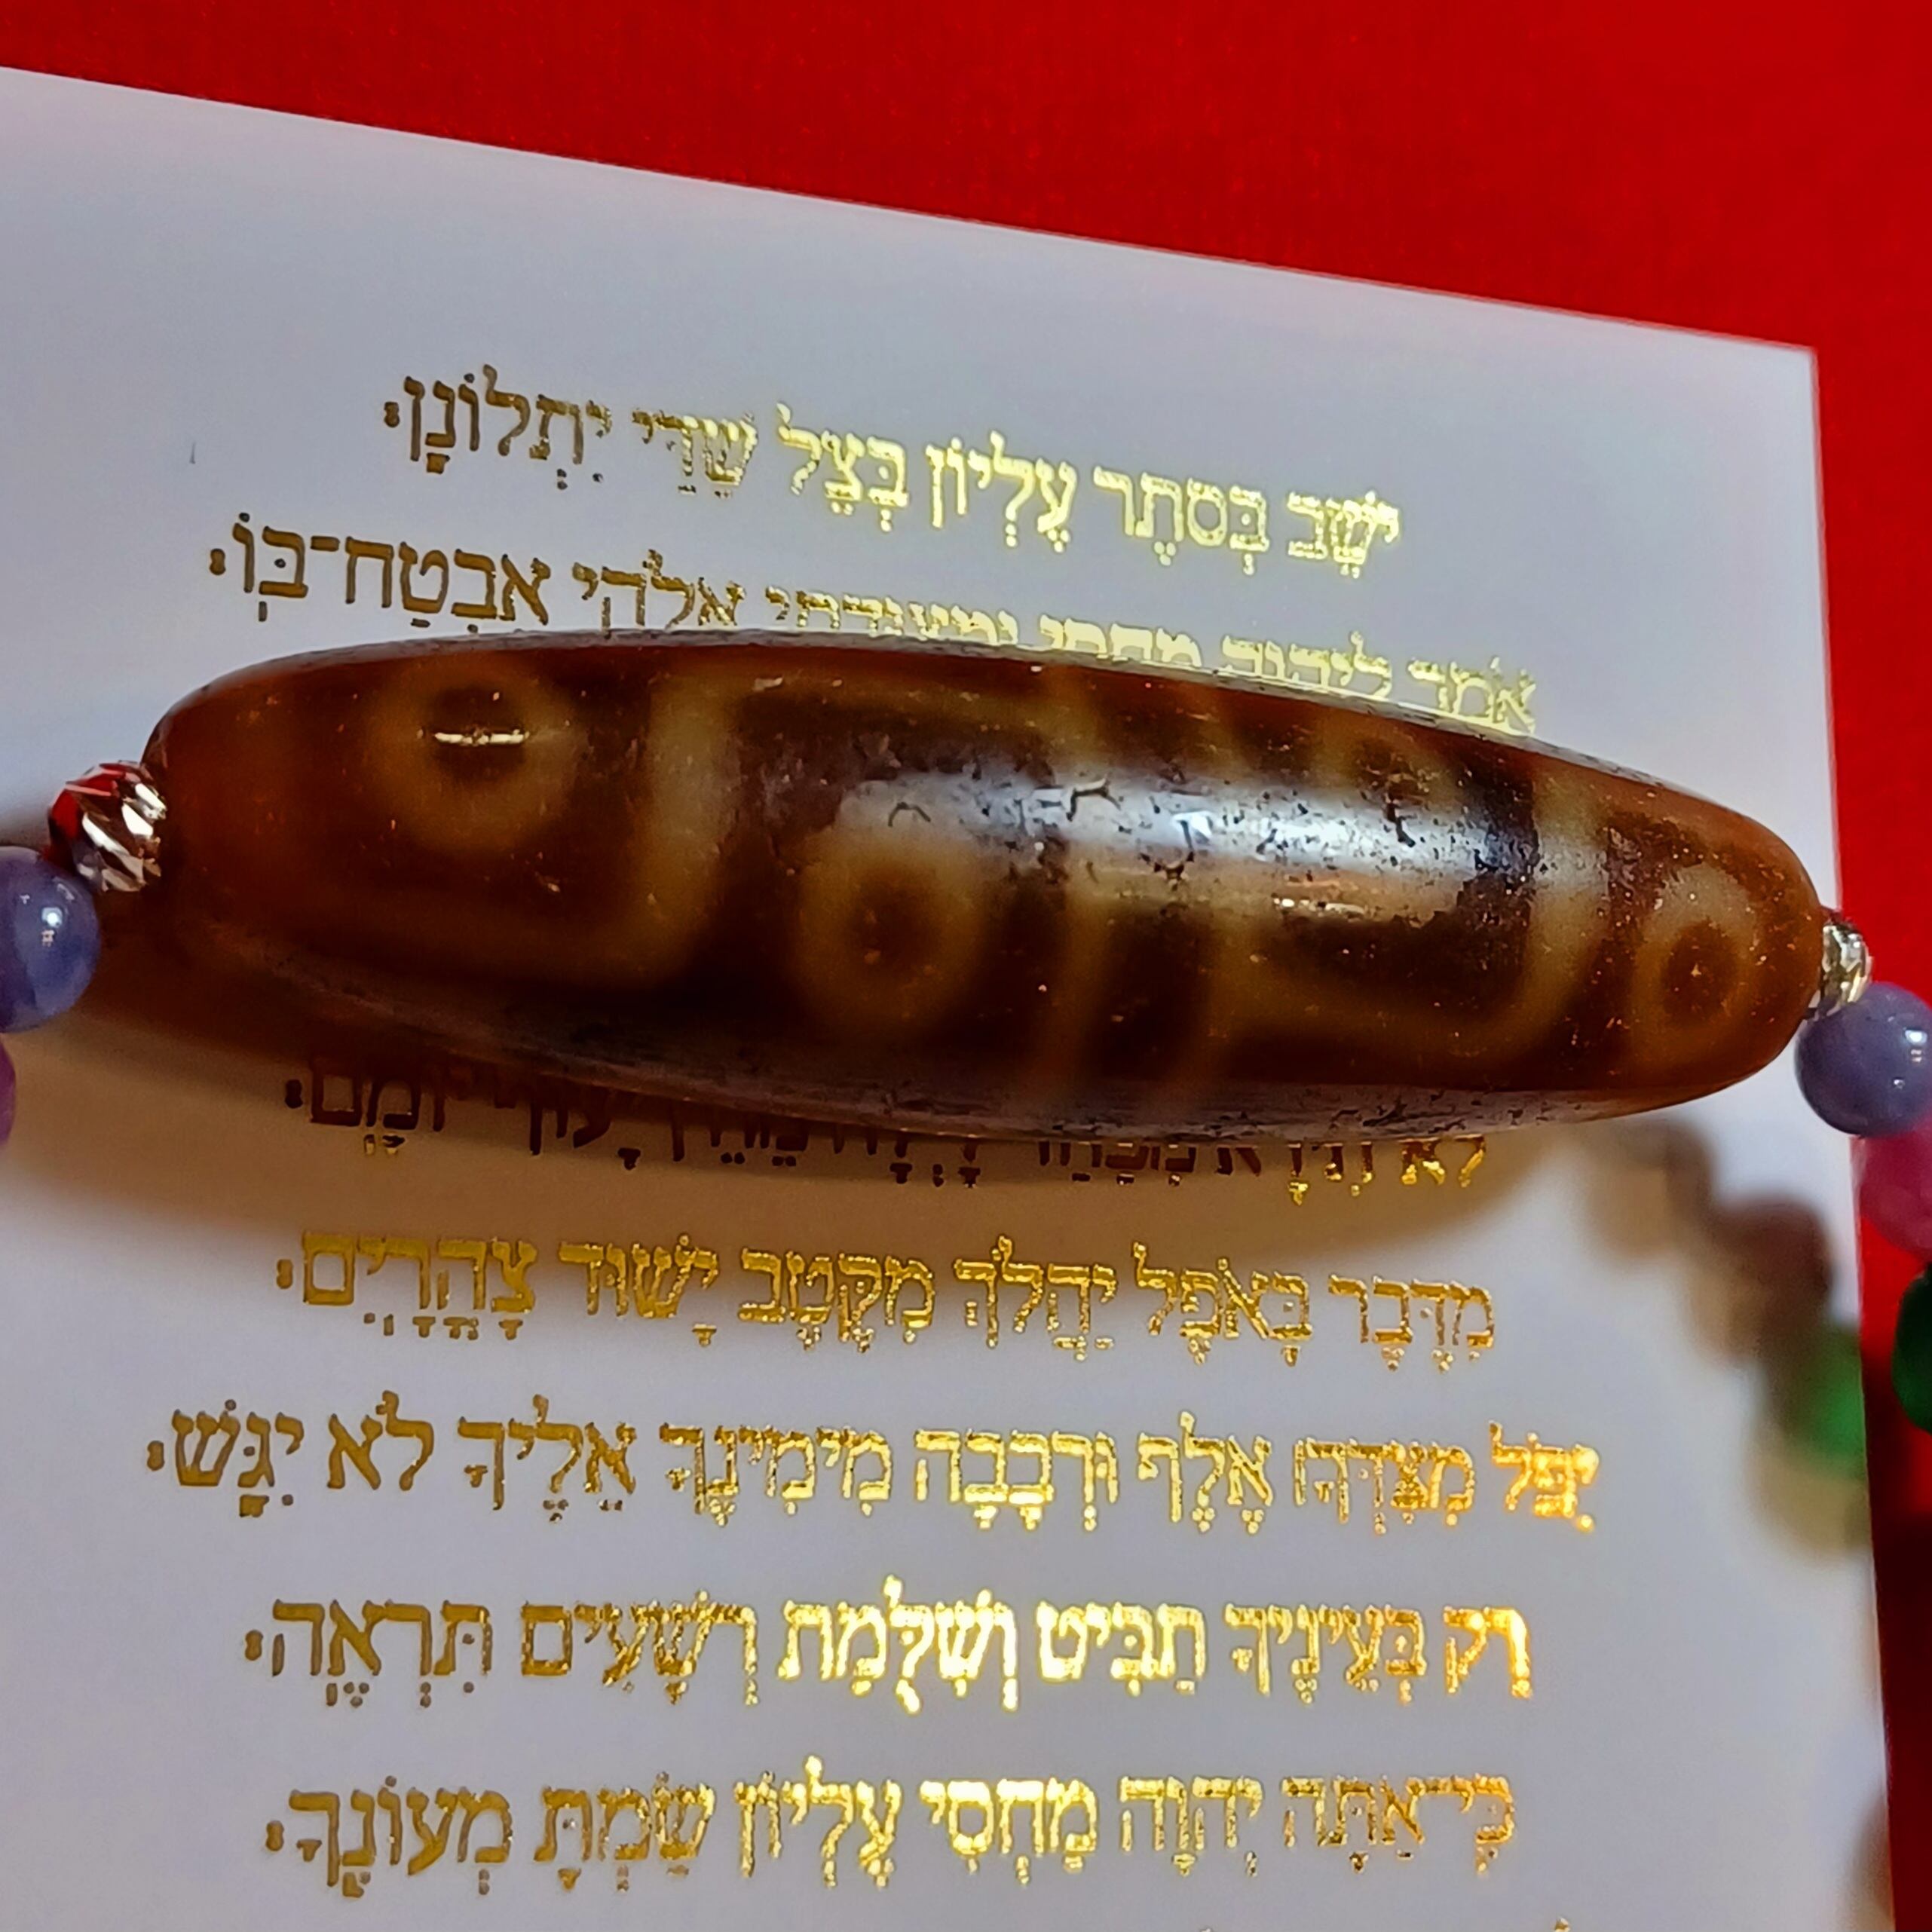 יֹשֵׁב בְּסֵתֶר עֶלְיוֹן בְּצֵל שַׁדַּי יִתְלוֹנָן׃
אֹמַר לַיהוָה מַחְסִי וּמְצוּדָתִי אֱלֹהַי אֶבְטַח־בּוֹ׃
לֹא תִירָא מִפַּחַד לָיְלָה מֵחֵץ יָעוּף יוֹמָם׃
מִדֶּבֶר בָּאֹפֶל יַהֲלֹךְ מִקֶּטֶב יָשׁוּד צָהֳרָיִם׃
יִפֹּל מִצִּדְּךָ אֶלֶף וּרְבָבָה מִימִינֶךָ אֵלֶיךָ לֹא יִגָּשׁ׃
רַק בְּעֵינֶיךָ תַבִּיט וְשִׁלֻּמַת רְשָׁעִים תִּרְאֶה׃
כִּי־אַתָּה יְהוָה מַחְסִי עֶלְיוֹן שַׂמְתָּ מְעוֹנֶךָ׃